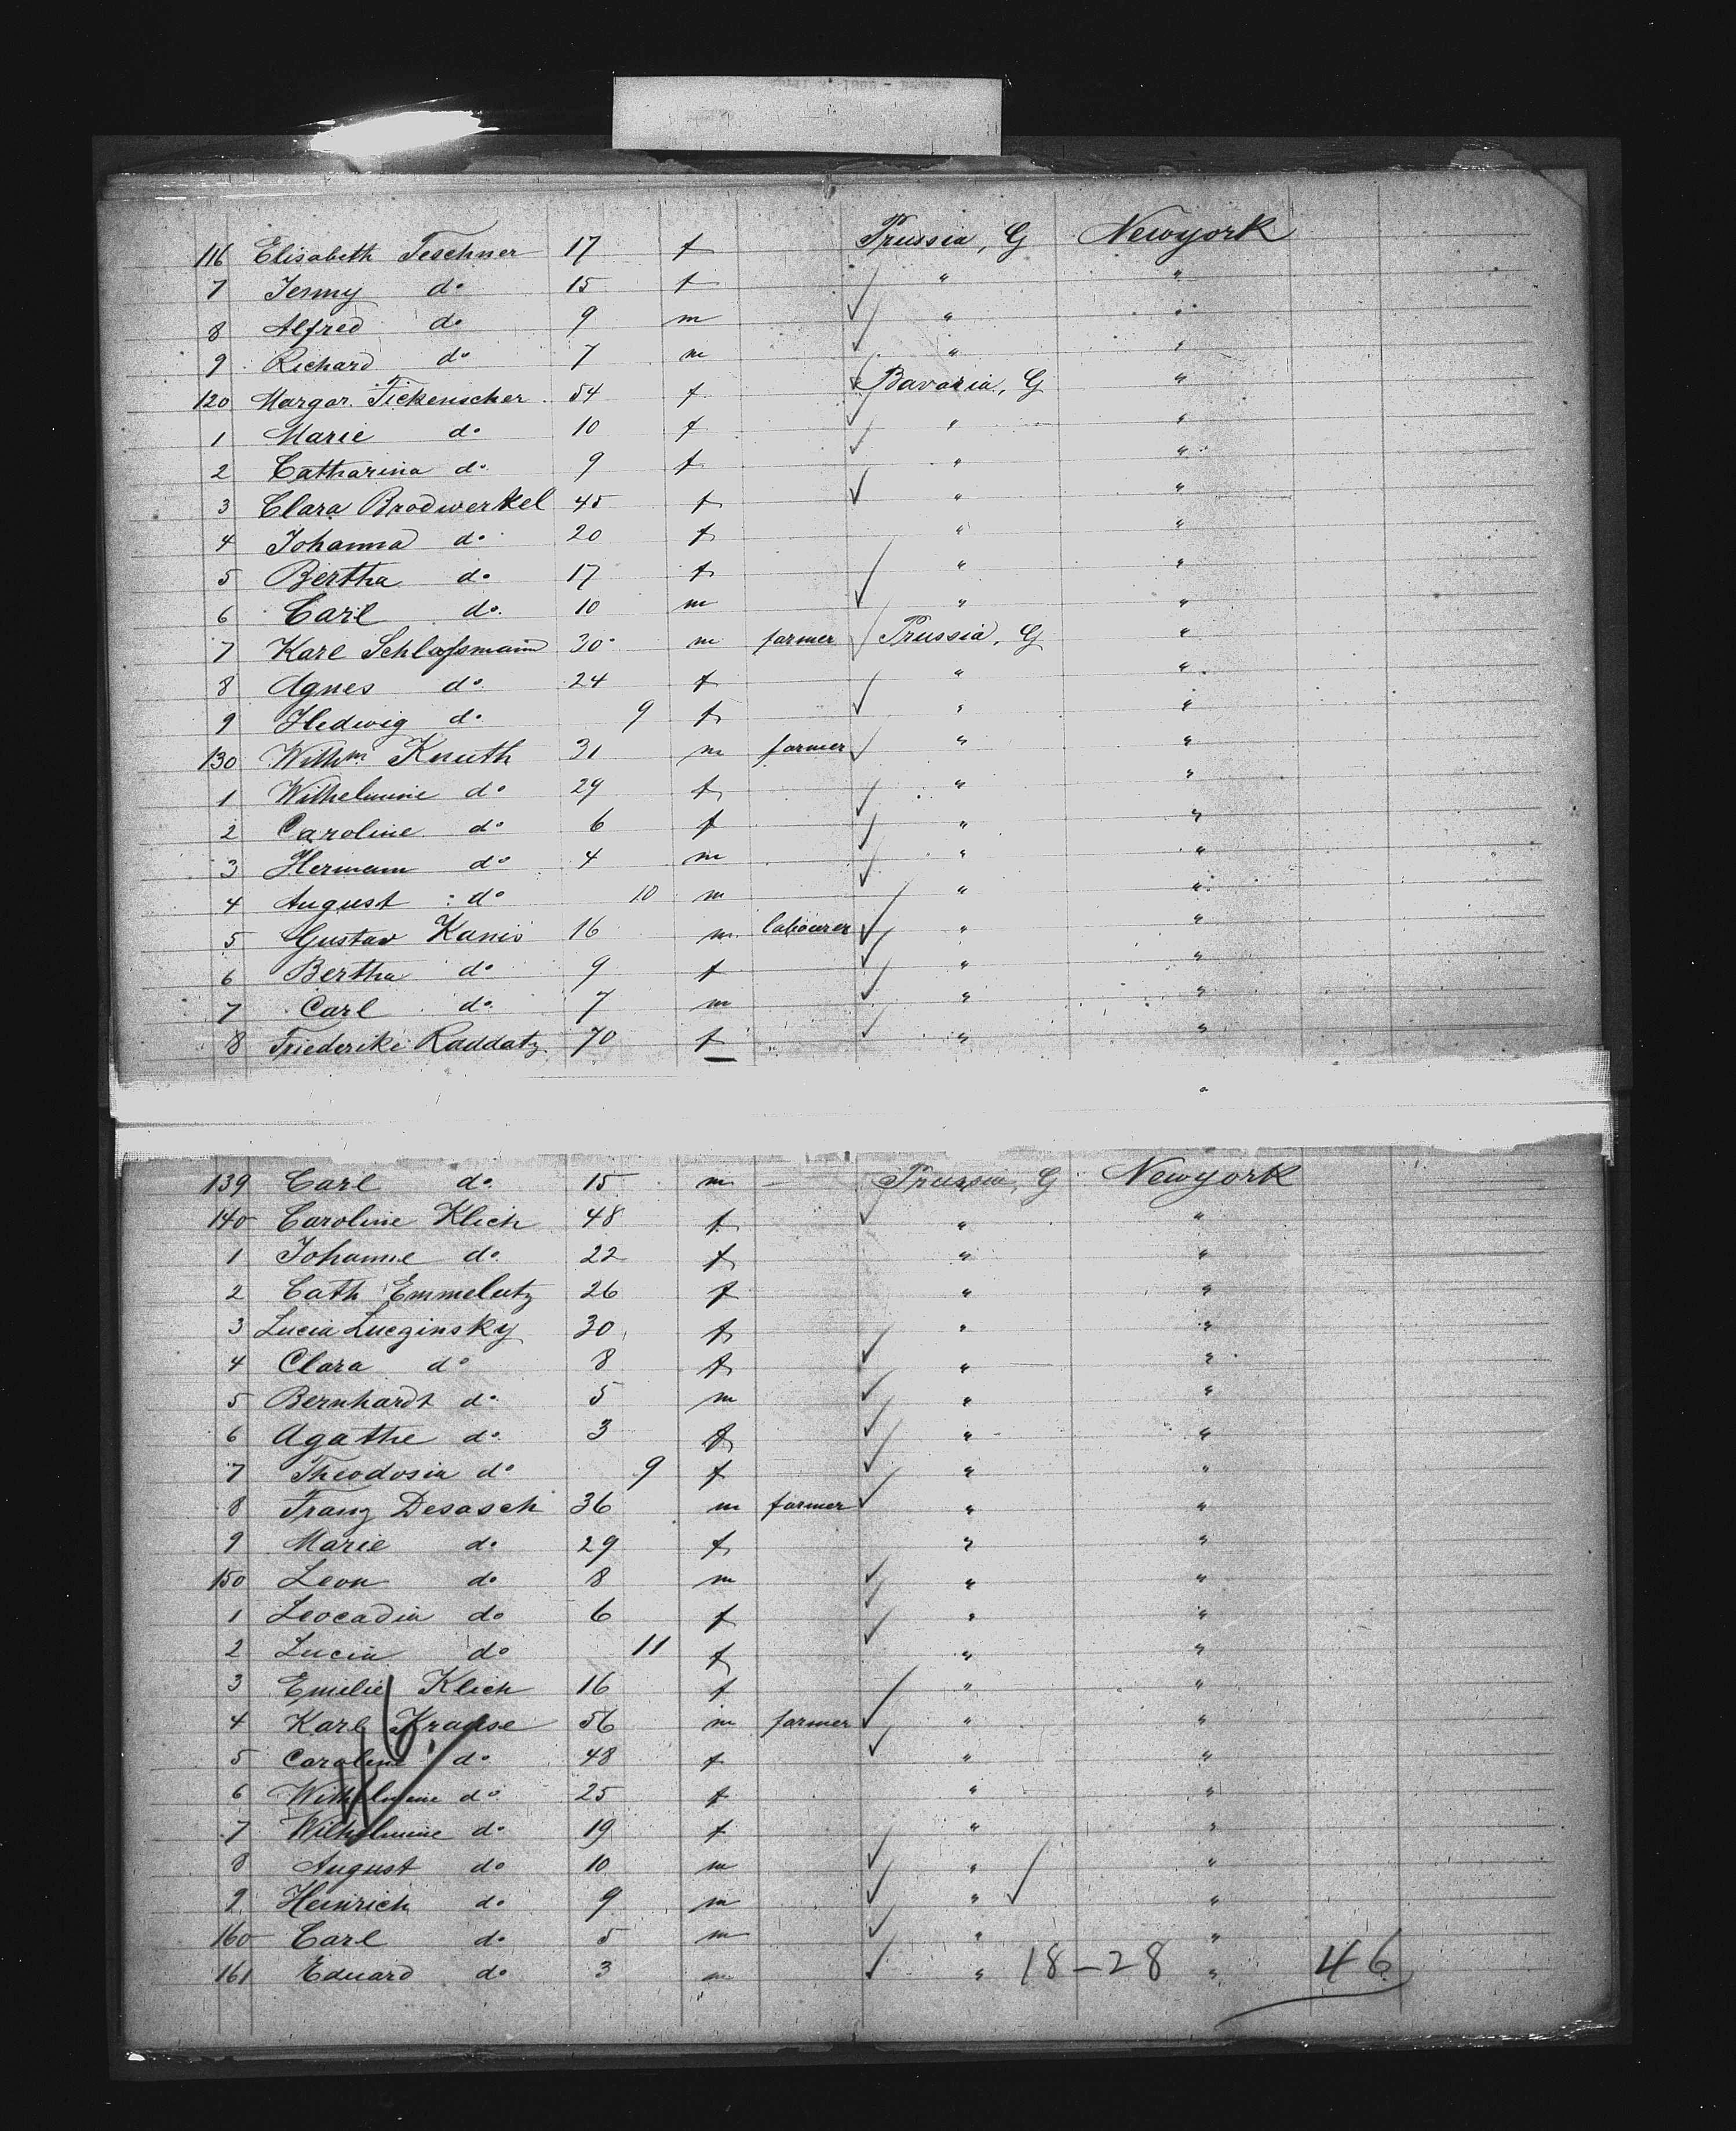 116 Elisabeth Teschner 17 f Prussia, G Newyork
7 Jenny do 15 f " "
8 Alfred do 9 m " "
9 Richard do 7 m " "
120 Margar. Tickenscher 54 f Bavaria, G "
1 Marie do 10 f " "
2 Catharina do 9 f " "
3 Clara Brodwerkel 45 f " "
4 Johanna do 20 f " "
5 Bertha do 17 f " "
6 Carl do 10 m " "
7 Karl Schlaſsmann 30 m farmer Prussia, G "
8 Agnes do 24 f " "
9 Hedwig do 9 f " "
130 Wilhm Knuth 31 m farmer " "
1 Wilhelmine do 29 f " "
2 Caroline do 6 f " "
3 Hermann do 4 m " "
4 August do 10 m " "
5 Gustav Kanis 16 m labourer " "
6 Bertha do 9 f " "
7 Carl do 7 m " "
8 Friederike Raddatz 70 f " "
139 Carl do 15 m — Prussia, G Newyork
140 Caroline Klich 48 f " "
1 Johanne do 22 f " "
2 Cath Emmelutz 26 f " "
3 Lucia Luczinsky 30 f " "
4 Clara do 8 f " "
5 Bernhardt do 5 m " "
6 Agathe do 3 f " "
7 Theodosia do 9 f " "
8 Franz Desasch 36 m farmer " "
9 Marie do 29 f " "
150 Leon do 8 m " "
1 Leocadia do 6 f " "
2 Lucia do 11 f " "
3 Emilie Klich 16 f " "
4 Karl Krause 56 m farmer " "
5 Caroline do 48 f " "
6 Wilhelmine do 25 f " "
7 Wilhelmine do 19 f " "
8 August do 10 m " "
9 Heinrich do 9 m " "
160 Carl do 5 m " "
161 Eduard do 3 m " 18-28 " 46